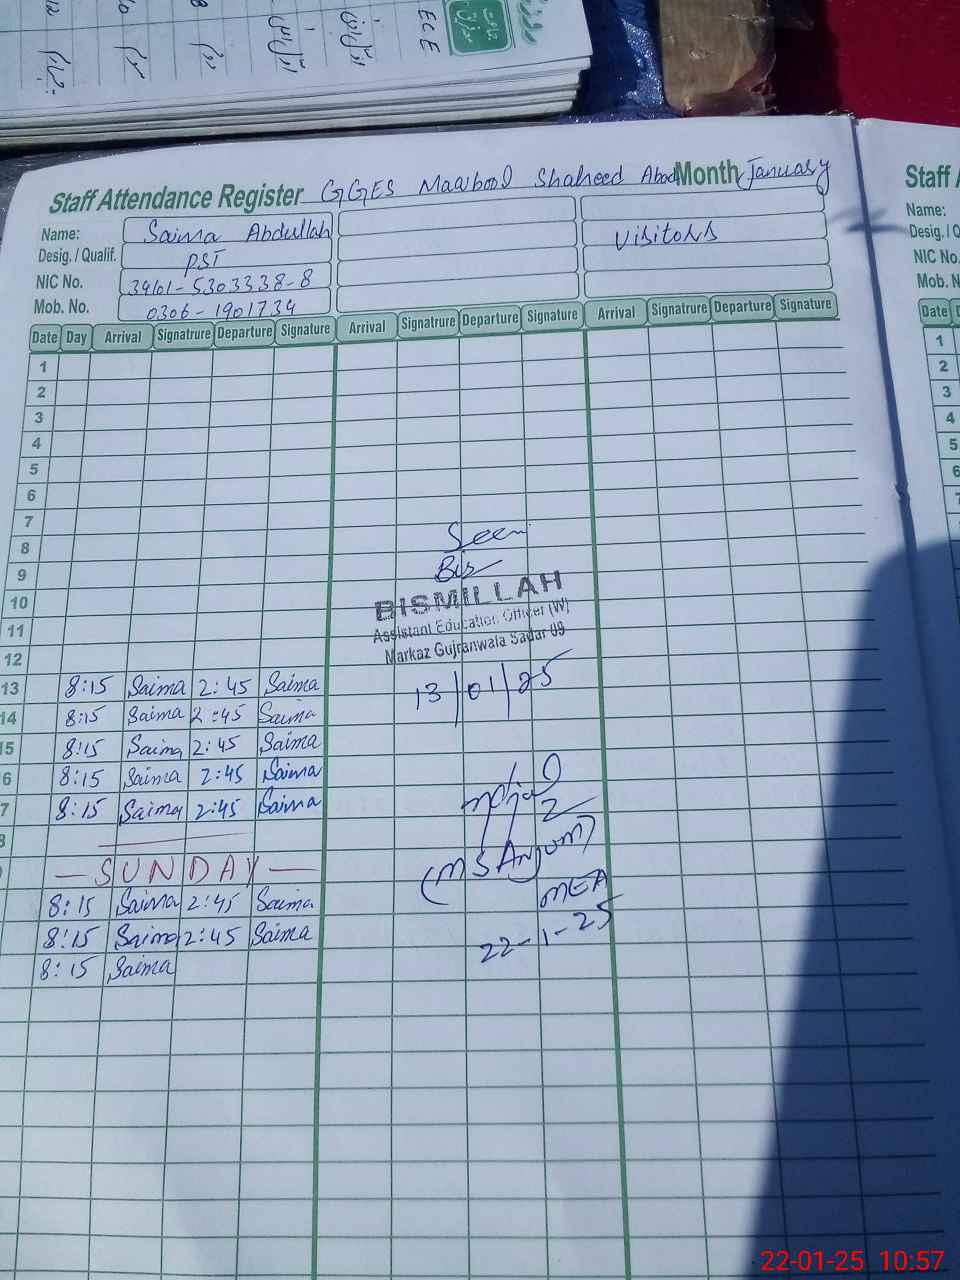 ECE
اول ادنیٰ
اول اعلیٰ
دوم
سوم
چہارم
Staff Attendance Register GGES Maqbool Shaheed Abad Month January
Name: Saima Abdullah
Visitors
Desig. / Qualif. PST
NIC No. 3461-5303338-8
Mob. No. 0306-1901734
Date Day Arrival Signatrure Departure Signature Arrival Signatrure Departure Signature Arrival Signatrure Departure Signature
1
2
3
4
5
6
7
8
9
10
11
12
Seen
Bis
BISMILLAH
Assistant Education Officer (W)
Markaz Gujranwala Sadar 09
13/01/25
13 8:15 Saima 2:45 Saima
14 8:15 Saima 2:45 Saima
15 8:15 Saima 2:45 Saima
6 8:15 Saima 2:45 Saima
7 8:15 Saima 2:45 Saima
8
— SUNDAY —
8:15 Saima 2:45 Saima
8:15 Saima 2:45 Saima
8:15 Saima
(MS Anjum)
MEA
22-1-25
Staff A
Name:
Desig. / Q
NIC No.
Mob. N
Date D
1
2
3
4
5
6
22-01-25 10:57